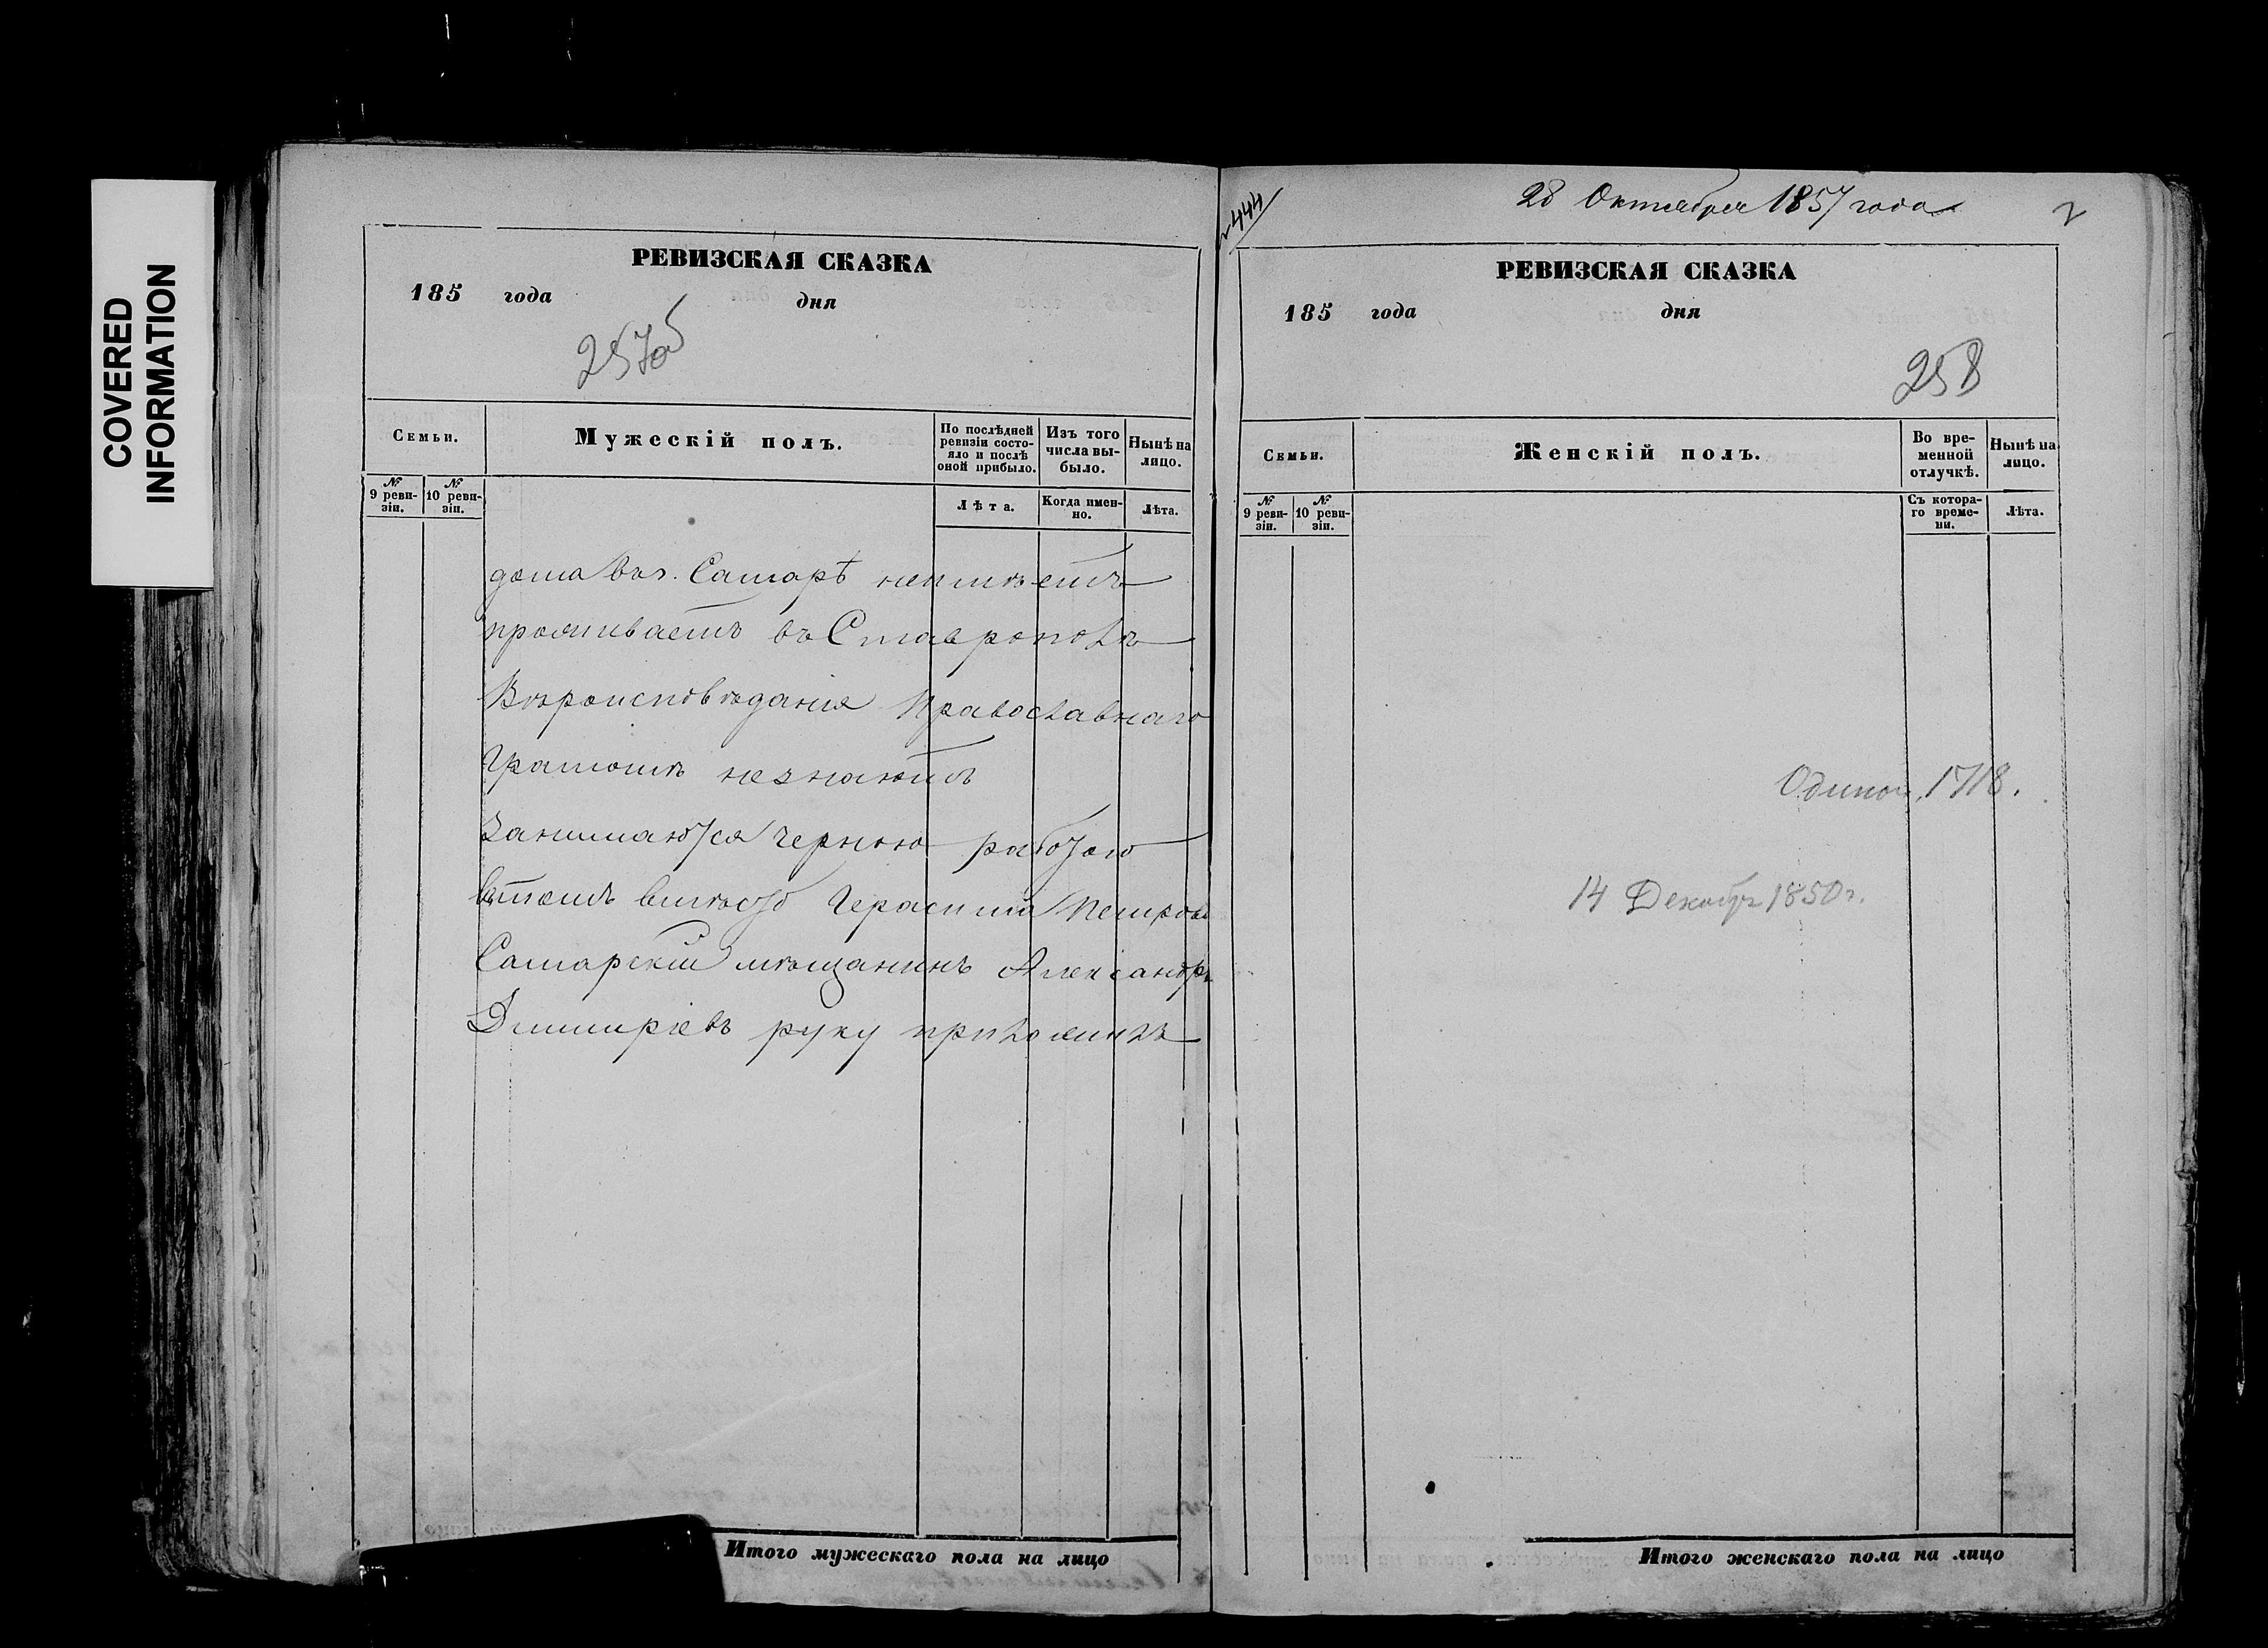 COVERED
INFORMATION
РЕВИЗСКАЯ СКАЗКА
185 года дня
257об
Семьи.
Мужескій полъ.
По послѣдней ревизіи состояло и послѣ оной прибыло.
Изъ того числа выбыло.
Нынѣ на лицо.
№ 9 ревизіи.
№ 10 ревизіи.
Лѣта.
Когда именно.
Лѣта.
дома въ г. Самарѣ неимѣетъ
проживаетъ въ Ставрополѣ
Вѣроисповѣданія Православнаго
Грамотѣ незнаютъ
Занимаются черною работою
вътомъ вмѣсто Герасима Петрова
Самарскій мѣщанинъ Александръ
Дмитріевъ руку приложилъ
Итого мужескаго пола на лицо
444
28 Октября 1857 года
2
РЕВИЗСКАЯ СКАЗКА
185 года дня
258
Семьи.
Женскій полъ.
Во временной отлучкѣ.
Нынѣ на лицо.
№ 9 ревизіи.
№ 10 ревизіи.
Съ котораго времени.
Лѣта.
1718.
14 Декабр 1850 г.
Итого женскаго пола на лицо